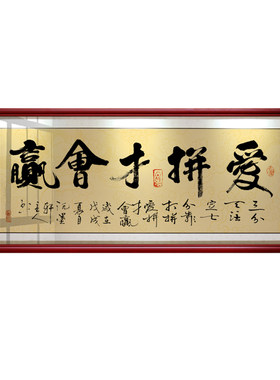 愛拼才會贏
三分
天注
定七
分靠
打拼
愛拼
才
會贏
歲在
戊戌
夏月
墨
軒
主人